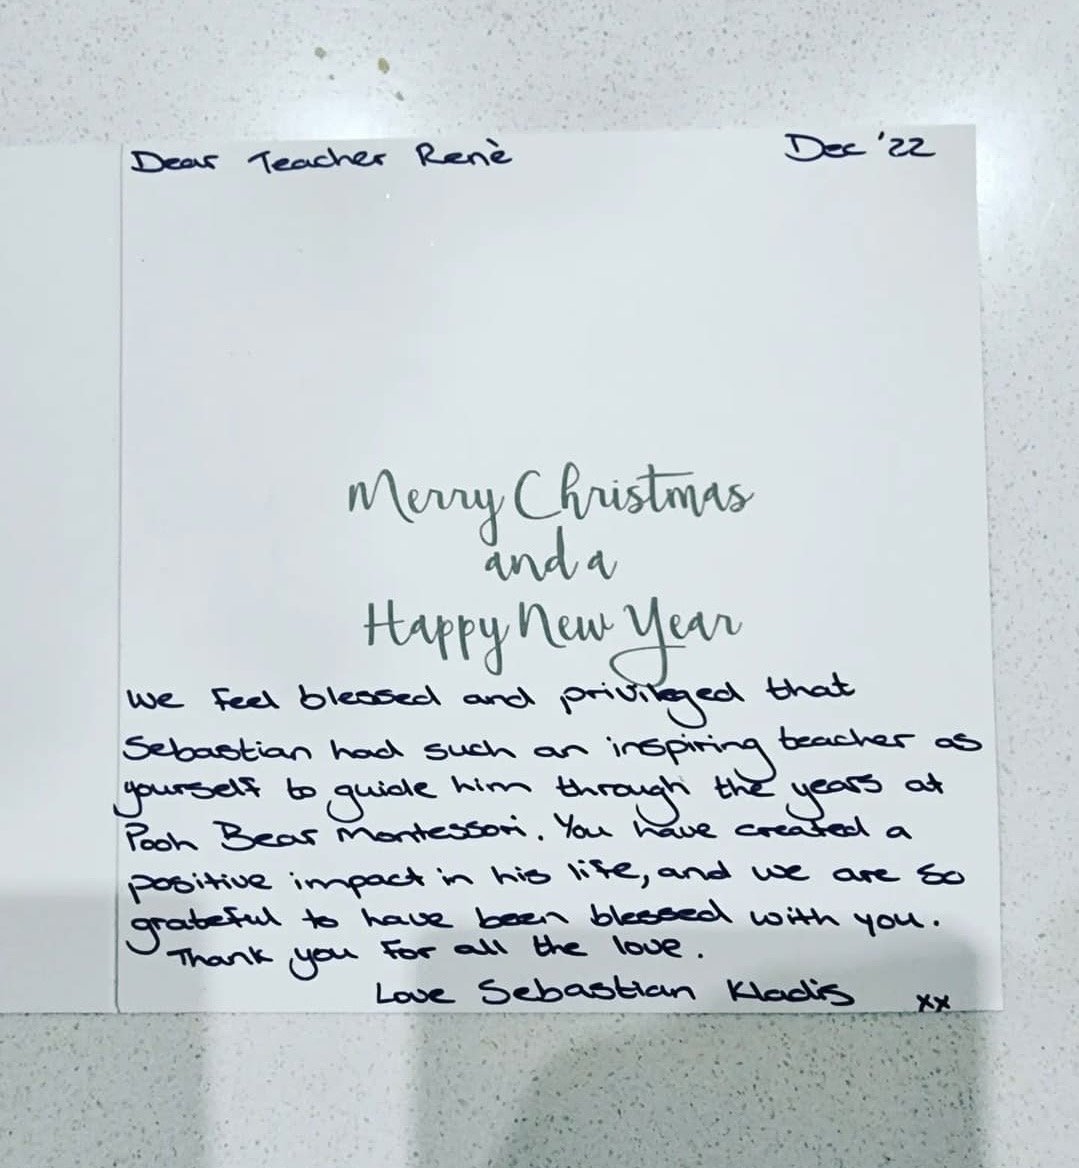 Dear Teacher Renè
Dec '22
Merry Christmas
and a
Happy New Year
We feel blessed and privileged that
Sebastian had such an inspiring teacher as
yourself to guide him through the years at
Pooh Bear Montessori. You have created a
positive impact in his life, and we are so
grateful to have been blessed with you.
Thank you for all the love.
Love Sebastian Kladis xx